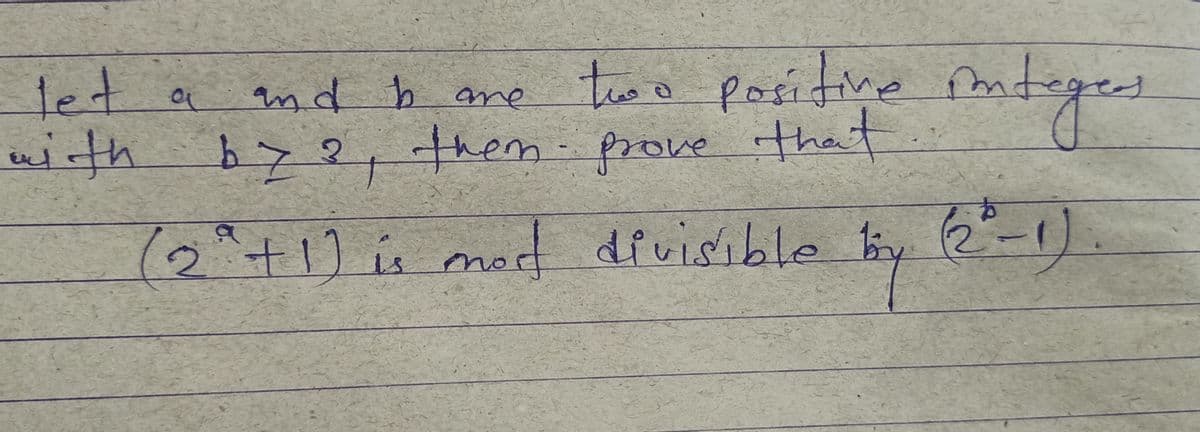 let a and b are two positive integers
with b ≥ 3, then prove that
(2^a+1) is not divisible by (2^b-1).